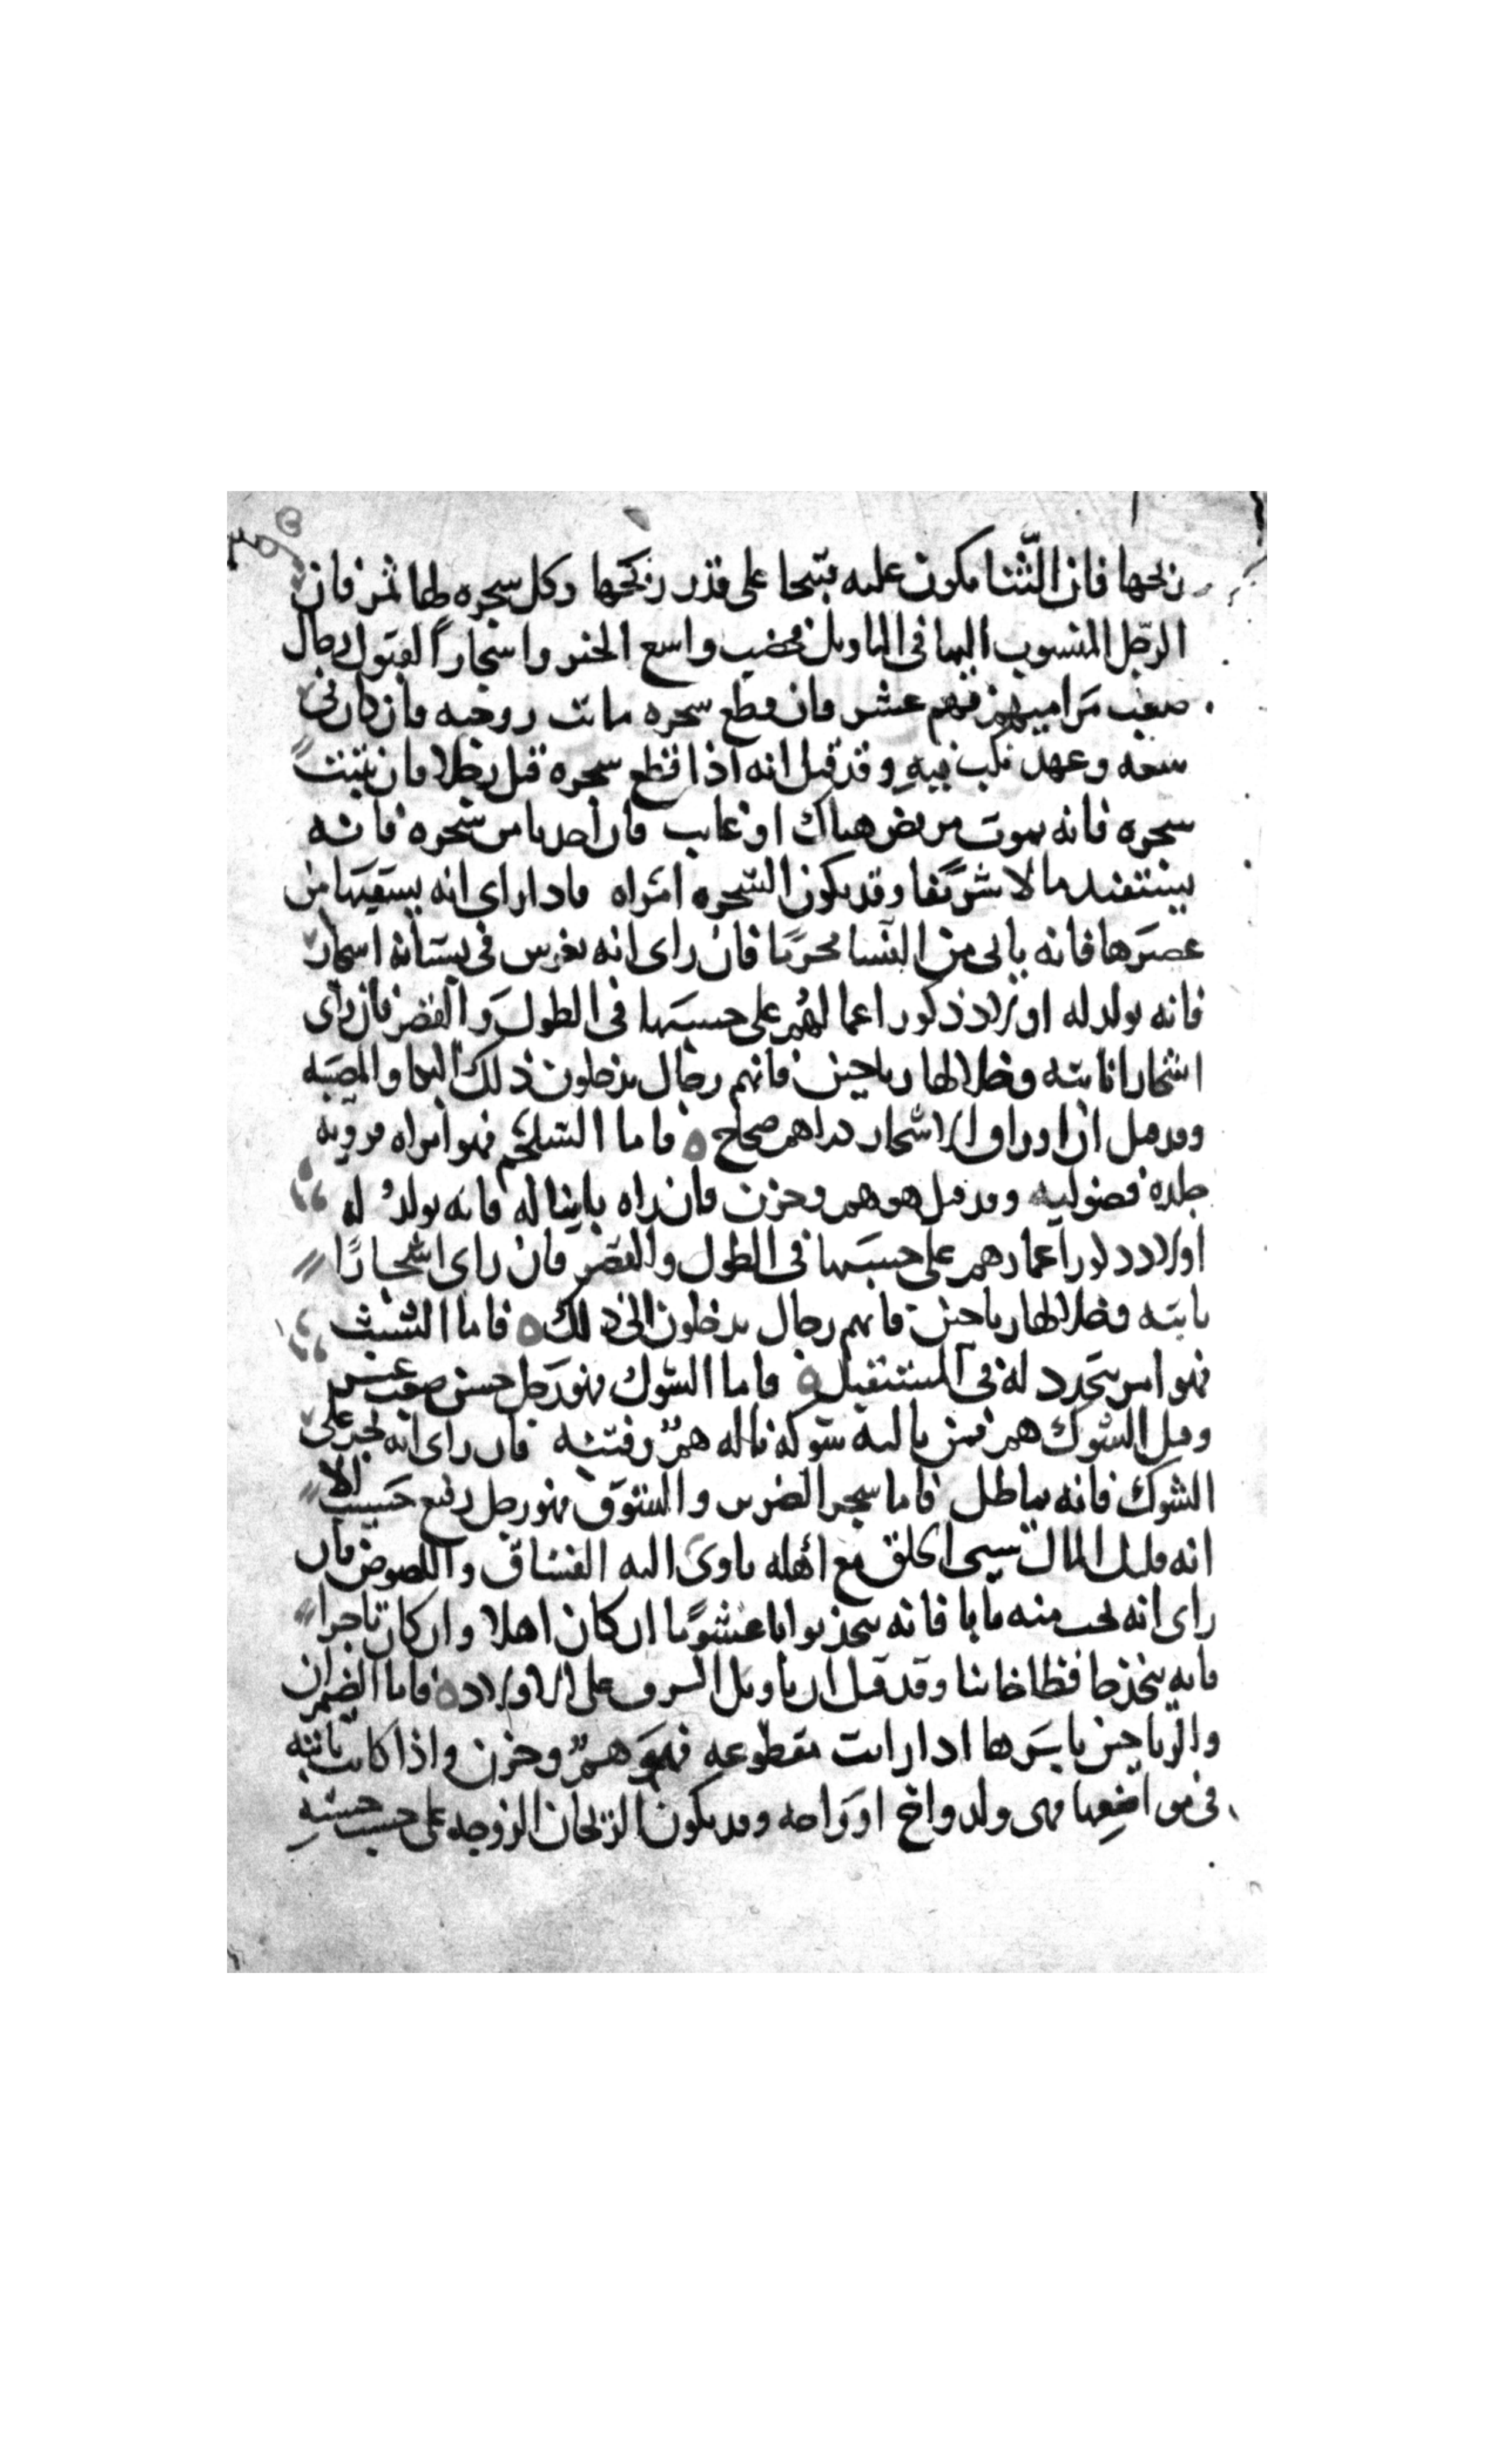 ريحها فان الثنا يكون عليه قبيحا على قدر ريحها وكل شجره لها ثمر فان
الرجل المنسوب اليها في التاويل مخصب واسع الخير واشجار القبول رجال
صعب مراميهم فيهم عسر فان قطع شجره ماتت زوجته فان كان في
سعه وعهد نكب فيه وقد قيل انه اذا قطع شجره قتل رجلا فان يبست
شجره فانه يموت مريض هناك او غايب فان اخذ ما من شجره فانه
يستفيد مالا شريفا وقد يكون الشجره امراه فاذا راى انه يسقيها من
عصيرها فانه ياتي من النسا محرما فان راى انه يغرس في بستانه اشجار
فانه يولد له اولاد ذكور اعمالهم على حسبها في الطول والقصر فان راى
اشجارا نابته وخلالها رياحين فانهم رجال يدخلون ذلك البكا والمصيبه
وقد قيل ان اوراق الاشجار دراهم صحاح ه فاما الشلجم فهو امراه قرويه
جلده فضوليه وقد قيل هو هم وحزن فان راه نابتا له فانه يولد له
اولاد ذكور اعمارهم على حسبها في الطول والقصر فان راى اشجارا
نابته وخلالها رياحين فانهم رجال يدخلون الى ذلك ه فاما الشبث
فهو امر يتجدد له في المستقبل ه فاما الشوك فهو رجل خشن صعب عسر
وقيل الشوك هم فمن نالته شوكه ناله هم وفتنه فان راى انه يجر على
الشوك فانه يماطل فاما شجر الضرس والشوق فهو رجل رفيع حسيب الا
انه قليل المال سيى الخلق مع اهله ياوى اليه الفساق واللصوص فان
راى انه يحب منه بابا فانه يتخذ بوابا غشوما ان كان اهلا وان كان تاجرا
فانه يتخذ حافظا خاينا وقد قيل ان تاويل السرو على الاولاد ه فاما الضيمران
والرياحين باسرها اذا رايت مقطوعه فهو هم وحزن واذا كانت نابته
في مواضعها فهي ولد واخ او راحه وقد يكون الريحان الزوجه على حسب حسنه